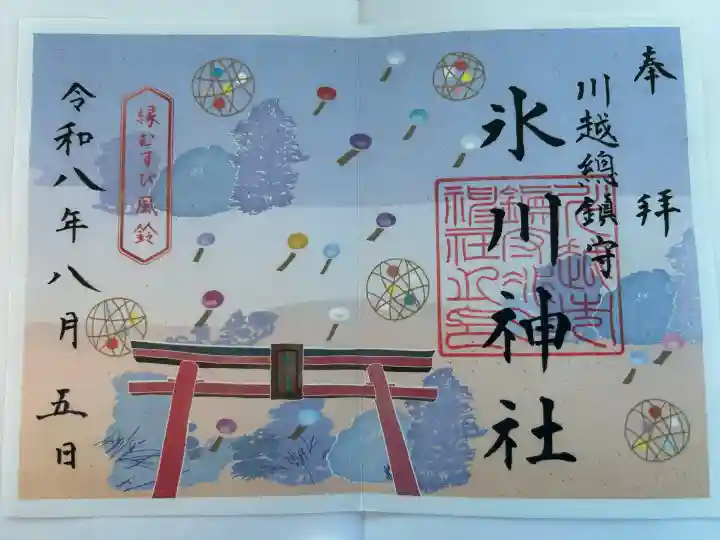 奉拝
川越總鎮守
氷川神社
縁むすび風鈴
令和八年八月五日